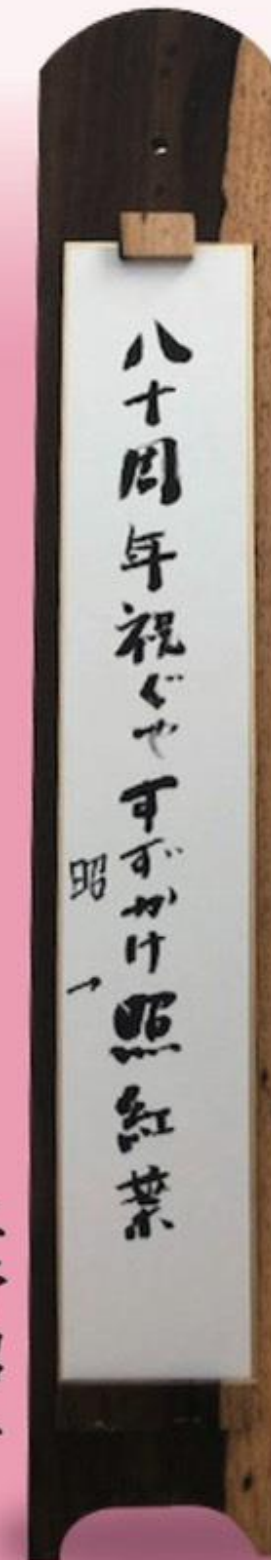 八十周年祝ぐやすずかけ照紅葉
昭→